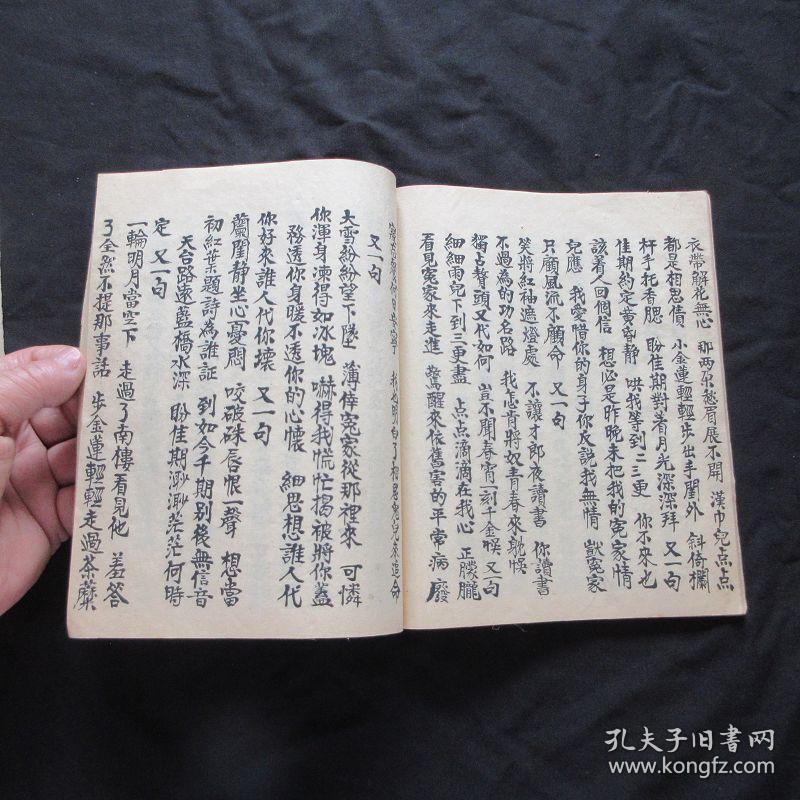 衣帶解花無心 那两眉愁眉展不開 漢巾兒点点
都是相思債 小金蓮輕輕步出手閨外 斜倚欄
杆手托香腮 盼佳期對着月光深深拜 又一句
佳期約定黄昏靜 哄我等到二三更 你不來也
該着人回個信 想必是昨晚未把我的寃家情
兒應 我愛惜你的身子你反說我無情 寃家
只顧風流不顧命 又一句
笑將紅袖遮燈處 不讓才郎夜讀書 你讀書
不過為的功名路 我怎肯將奴青春來躭悮
獨占鰲頭又代如何 豈不聞春宵一刻千金悮 又一句
細細雨兒下到三更盡 点点滴滴在我心 正朦朧
看見寃家來走進 驚醒來依舊害的平常病 廢
我也明白了相思
又一句
大雪紛紛望下墜 薄倖寃家從那裡來 可憐
你渾身凍得如冰塊 嚇得我慌忙揭被將你蓋
務透你身暖不透你的心懷 細思想誰人代
你好來誰人代你壞 又一句
蘭閨靜坐心憂悶 咬破硃唇恨一聲 想當
初紅葉題詩為誰証 到如今千期別後無信音
天台路遠藍橋水深 盼佳期渺渺茫茫何時
定 又一句
一輪明月當空下 走過了南樓看見他 羞答
了全然不提那事話 步金蓮輕輕走過茶蘼
孔夫子旧書网
www.kongfz.com